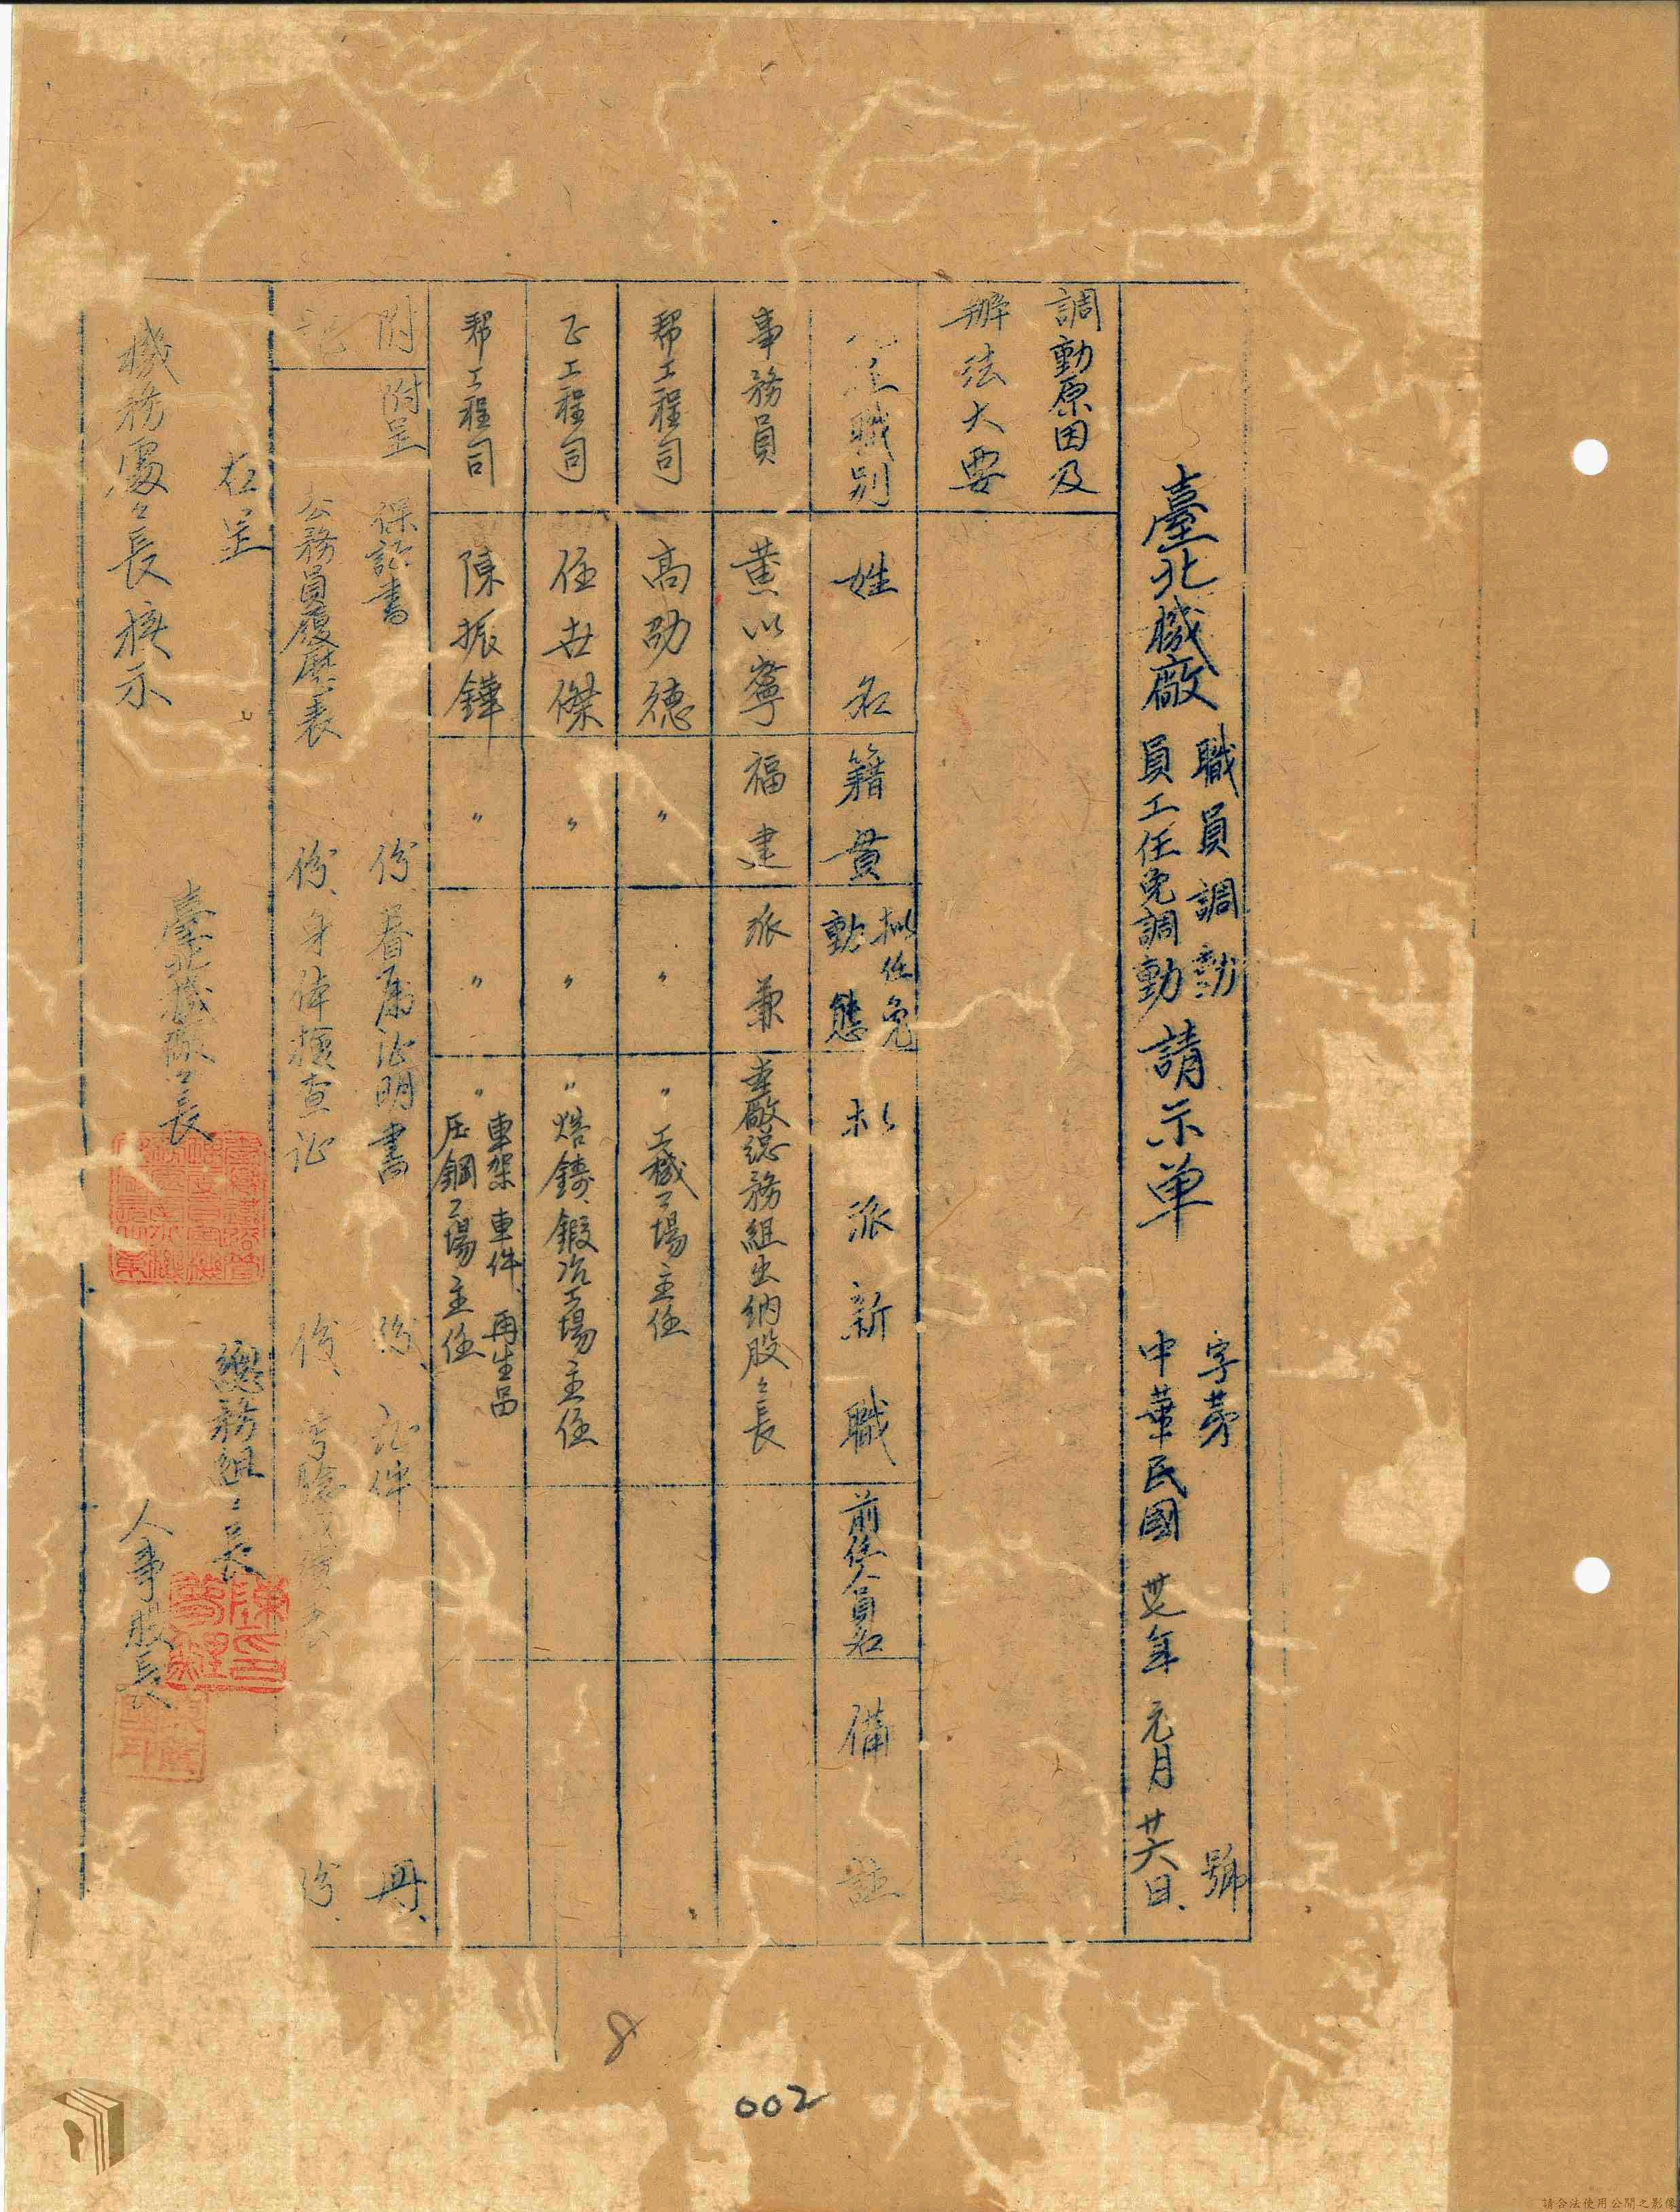 字第 號
職員調動
臺北機廠 員工任免調動 請示单 中華民國 卅七年 元月 廿六日、
調動原因及
辦法大要
職別 姓名 籍貫 拟任免動態 拟派新職 前任人員名 備註
事務員 黄以寧 福建 派兼 本廠總務組出納股〻長
帮工程司 高劭德 〃 〃 〃工機工場主任
正工程司 任世傑 〃 〃 〃焙鑄、鍛冶工場主任
帮工程司 陳振鏵 〃 〃 〃車架 車件 再生品
压鋼工場主任
附記
附呈 保証書 份、眷属証明書 份、証件 冊、
公務員履歷表 份、身体檢查証 份、 份、
右呈
機務處〻長核示
臺北機廠〻長
總務組〻長
人事股長
8
002
請合法使用公開之影像